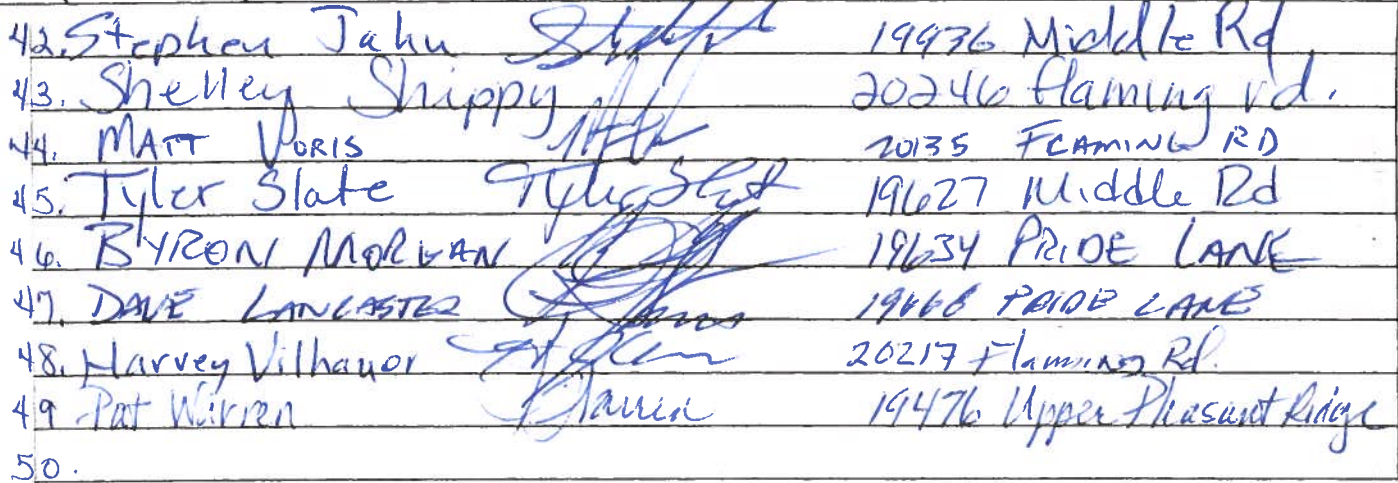 42. Stephen Jahn 19936 Middle Rd
43. Shelley Shippy 20246 flaming rd.
44. MATT VORIS 20135 FLAMING RD
45. Tyler Slate Tyler Slate 19627 Middle Rd
46. BYRON MORGAN 19634 PRIDE LANE
47. DAVE LANCASTER 19668 PRIDE LANE
48. Harvey Vilhauor 20217 Flaming Rd.
49 Pat Warren 19476 Upper Pleasant Ridge
50.